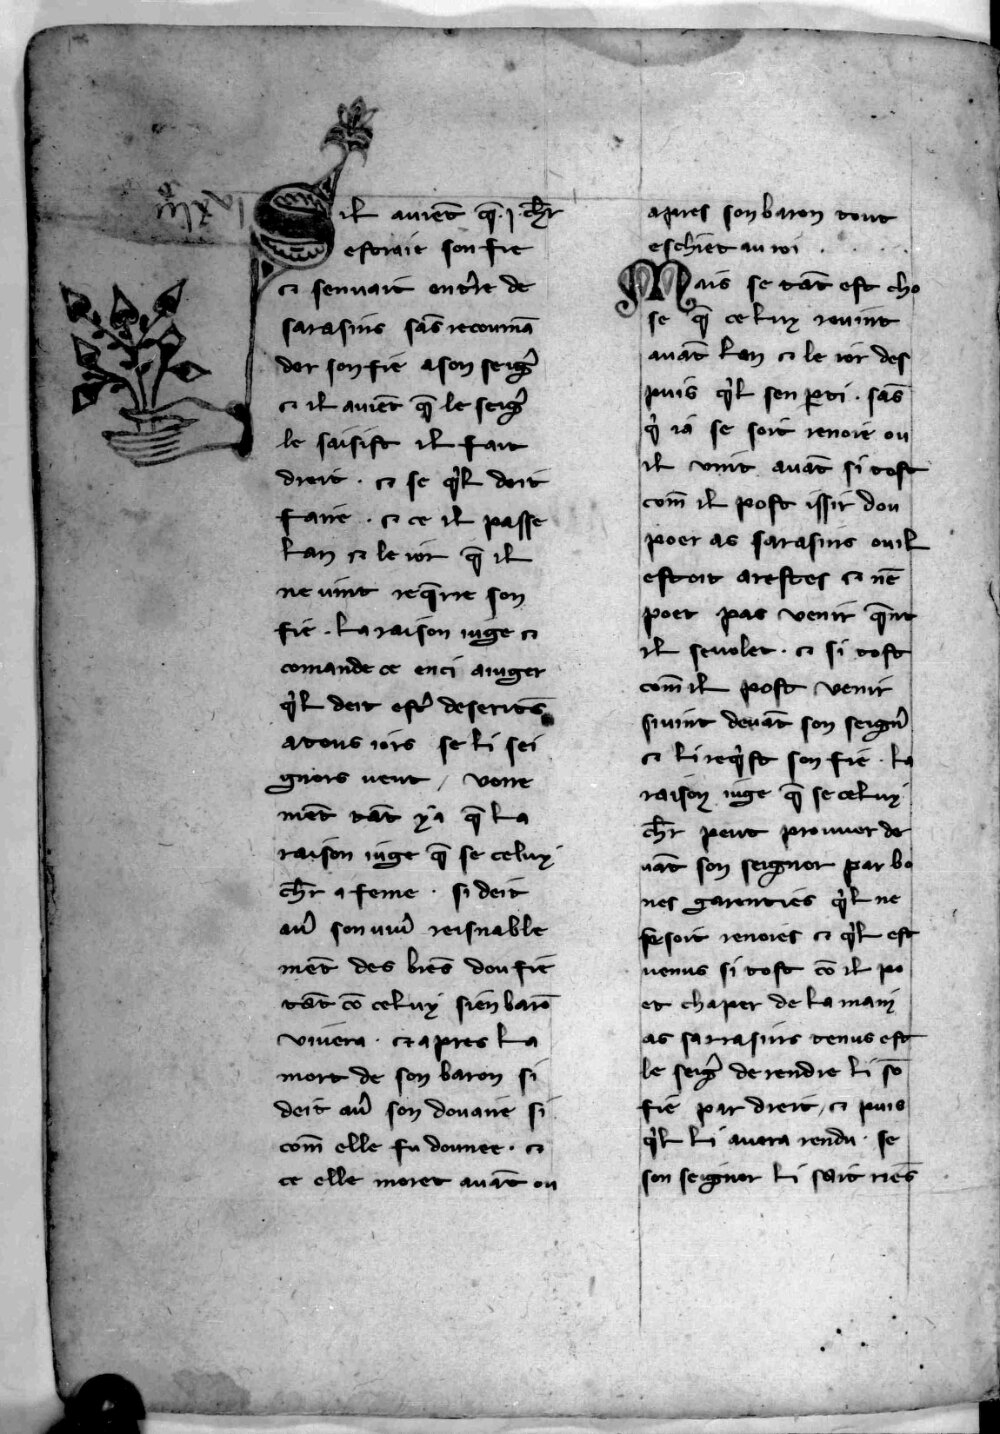 Sil auient q̄ .j. ch̄r
estraie son fie
⁊ senuait en tr̄e de
sarasins sās recomā
der son fie a son seigr̄
⁊ il auiēt q̄ le seigr̄
le saisist il fait
dreit . ⁊ se q̓l doit
faire . ⁊ ce il passe
lan ⁊ le ior q̄ il
ne uint req̄rre son
fie . la raison iuge ⁊
comande ce enci a iuger
q̓l deit estr̄ deseritēs
a tous iors se li sei
gnors ueut / voire
mēt tāt y a q̄ la
raison iuge q̄ se celuy
ch̄r a feme . si deit
aur̄ son uiur̄ reisnable
mēt des biēs dou fie
tāt cō celuy sien barō
viuera . ⁊ apres la
mort de son baron si
deit aur̄ son douaire si
com̄ elle fu dounee . ⁊
ce elle moret auāt ou
apres son baron tout
eschiet au roi .
Mais se tāt est cho
se q̄ celuy reuint
auāt lan ⁊ le ior des
puis q̓l sen ꝑti . sās
q̓ ia se soit renoie ou
il vint auāt si tost
com̄ il post issir dou
poer as sarasins ou il
estoit arestes ⁊ nē
poet pas venir q̄nt
il se uolet . ⁊ si tost
com̄ il post venir
si uint deuāt son seignr̄
⁊ li req̓st son fie . la
raison iuge q̄ se celuy
ch̄r peut prouuer de
uāt son seignor par bo
nes garenties q̓l ne
se soit renoies ⁊ q̓l est
uenus si tost cō il po
et chaper de la main
as sarrasins tenus est
le seigr̄ de rendre li sō
fie par dreit / ⁊ puis
q̓l li auera rendu . se
son seignor li seit riēs